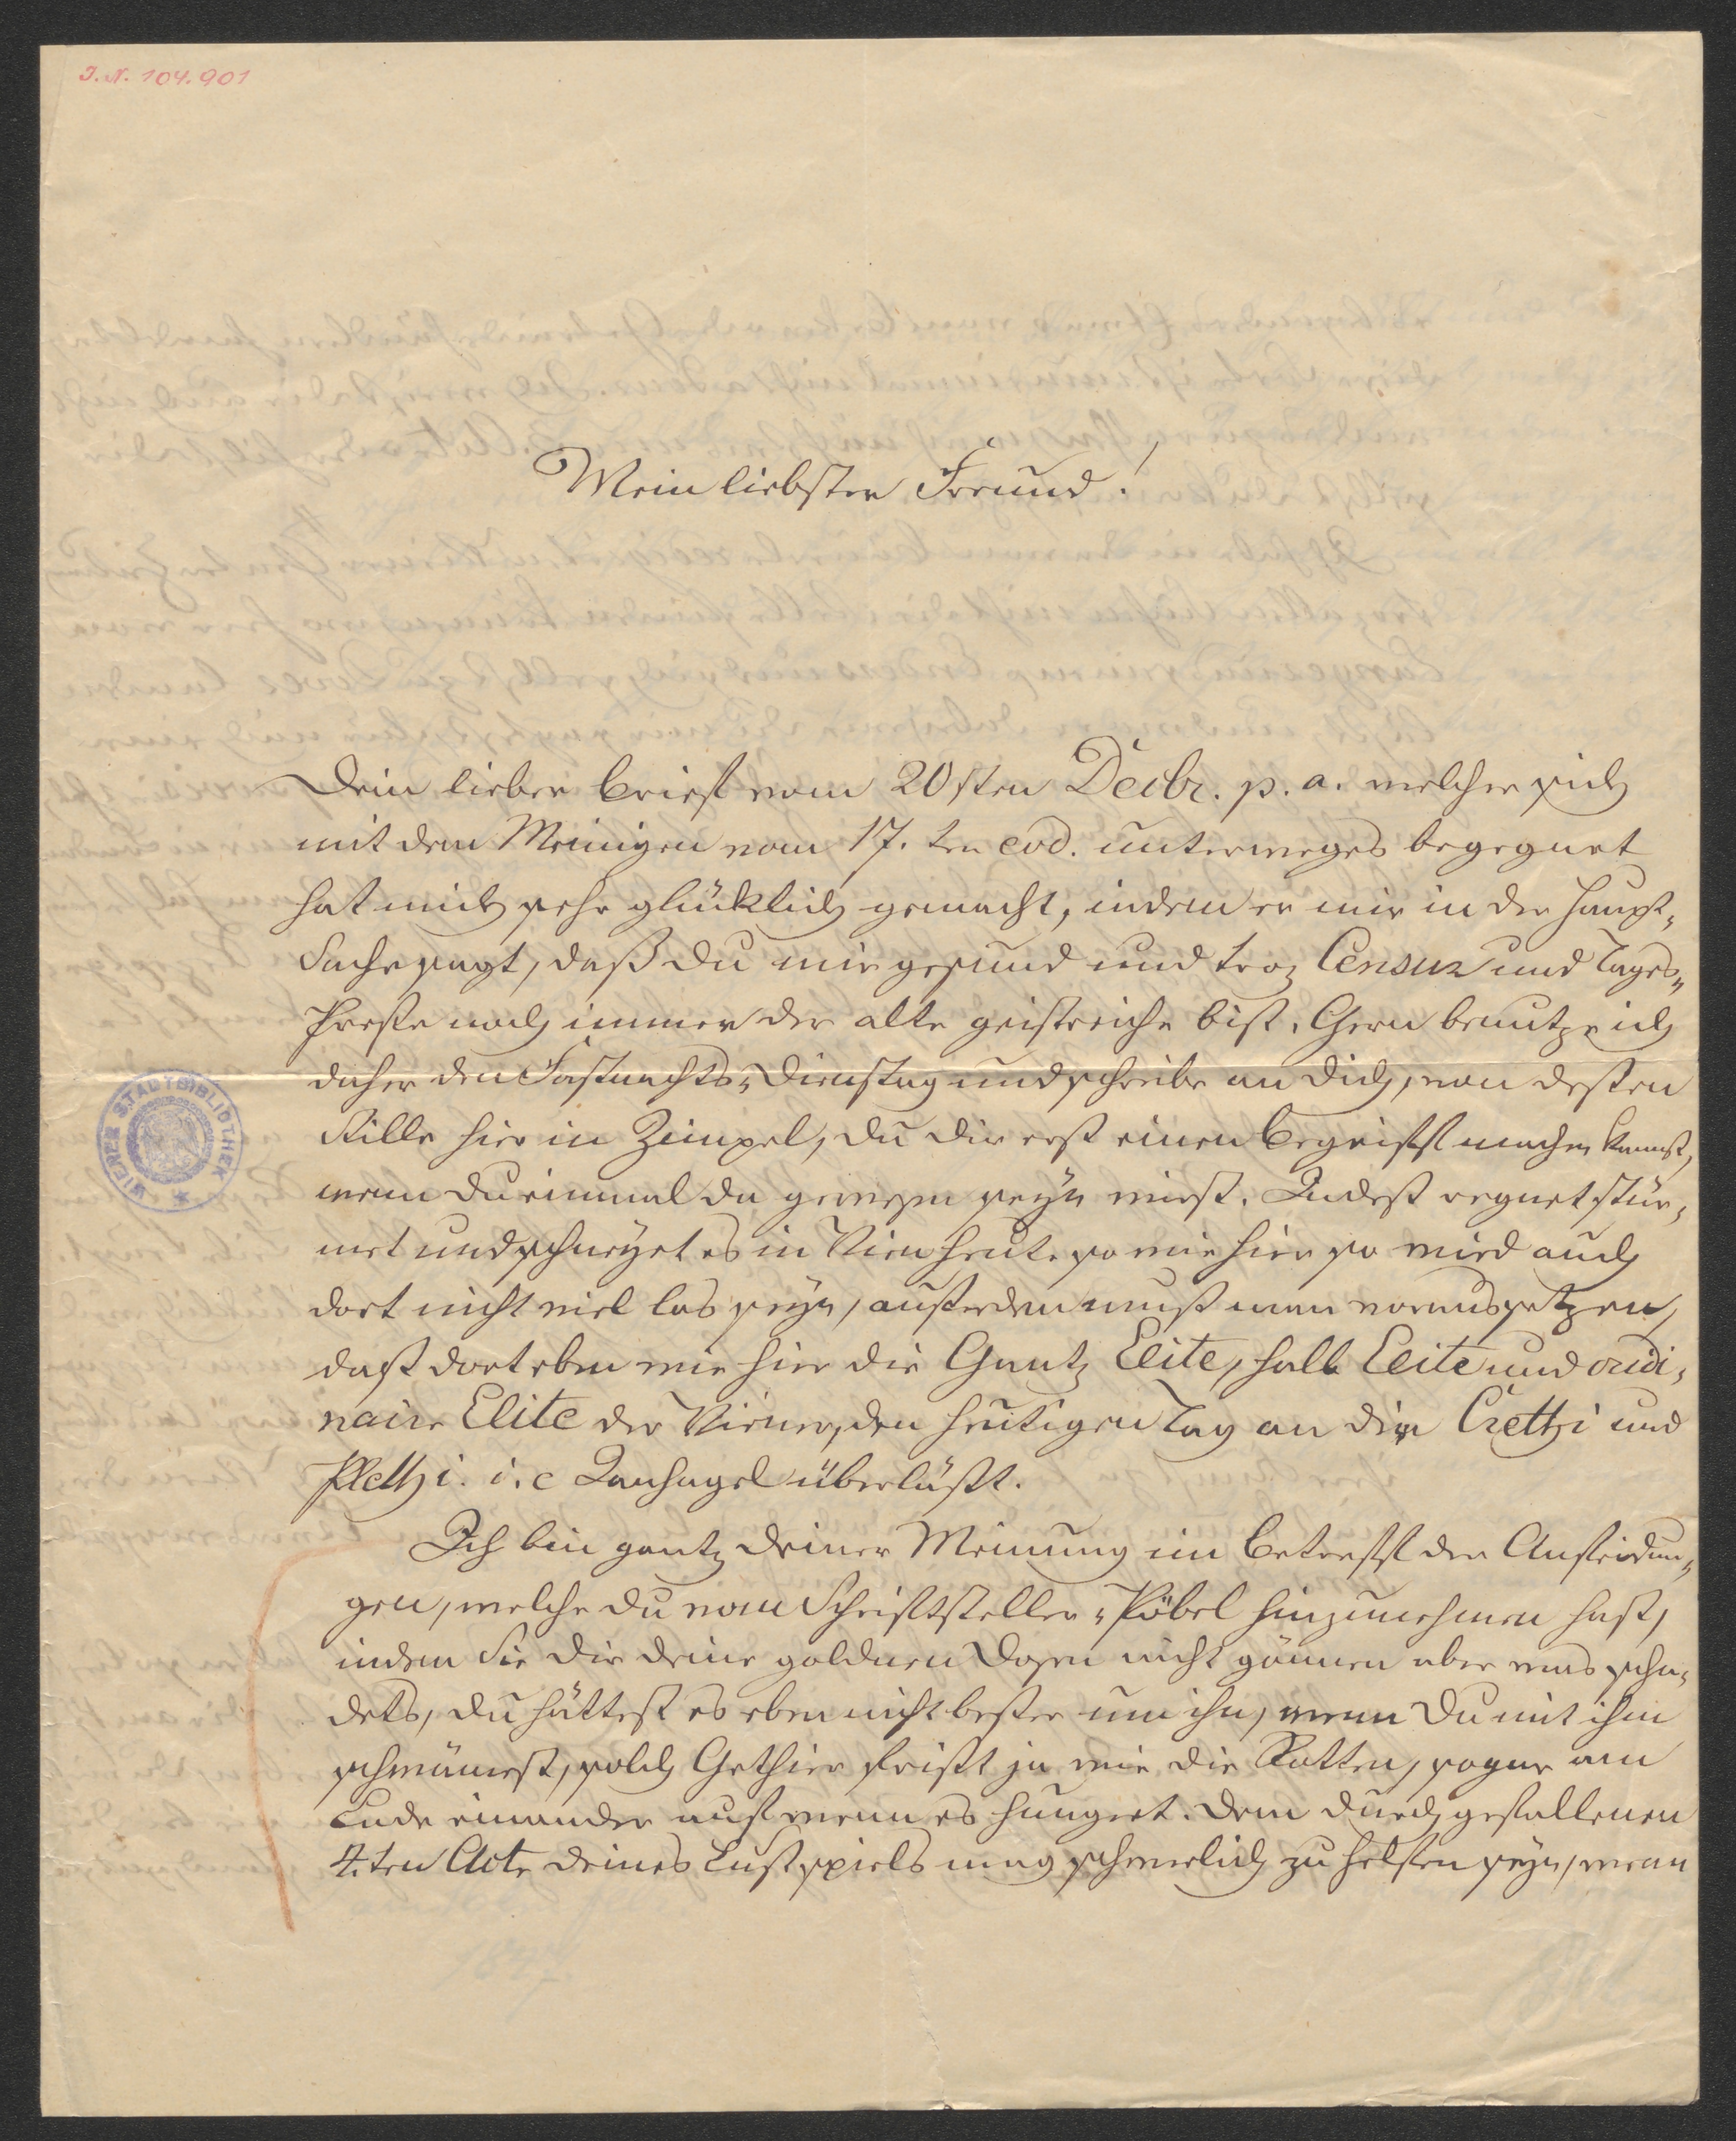 I. N. 104.901
Mein liebster Freund!
Dein lieber Brief vom 20sten Decbr. p. a. welcher sich
mit dem Meinigen vom 17.ten eod. unterweges begegnet
hat mich sehr glücklich gemacht, indem er mir in der Haupt-
Sache sagt, daß Du mir gesund und troz Censur und Tages-
Presse noch immer der alte geistreiche bist. Gern benutze ich
daher den Fastnachts-Dienstag und schreibe an Dich, von dessen
Stille hier in Zimpel, Du Dir erst einen Begriff machen kannst,
wenn Du einmal da gewesen seyn wirst. Indess regnet stür-
met und schneyet es in Wien heute so wie hier so wird auch
dort nicht viel los seyn, ausserdem muss man voraussetzen,
dass dort eben wie hier die Gantz Elite, halb Elite und ordi-
naire Elite der Wiener, den heutigen Tag an die Crethi und
Plethi. i. e Janhagel überlässt.
Ich bin gantz Deiner Meinung im Betreff der Anfeindun-
gen, welche Du vom Schriftsteller-Pöbel hinzunehmen hast,
indem Sie Dir Deine goldnen Dosen nicht gönnen aber was scha-
dets, Du hättest es eben nicht besser um ihn, wenn Du mit ihm
schwämest, solch Gethier frisst ja wie die Ratten, sogar am
Ende einander auf wenn es hungert. Dem durch gefallenen
4.ten Acte Deines Lustspiels mag schwerlich zu helfen seyn, wenn
WIENER STADTBIBLIOTHEK